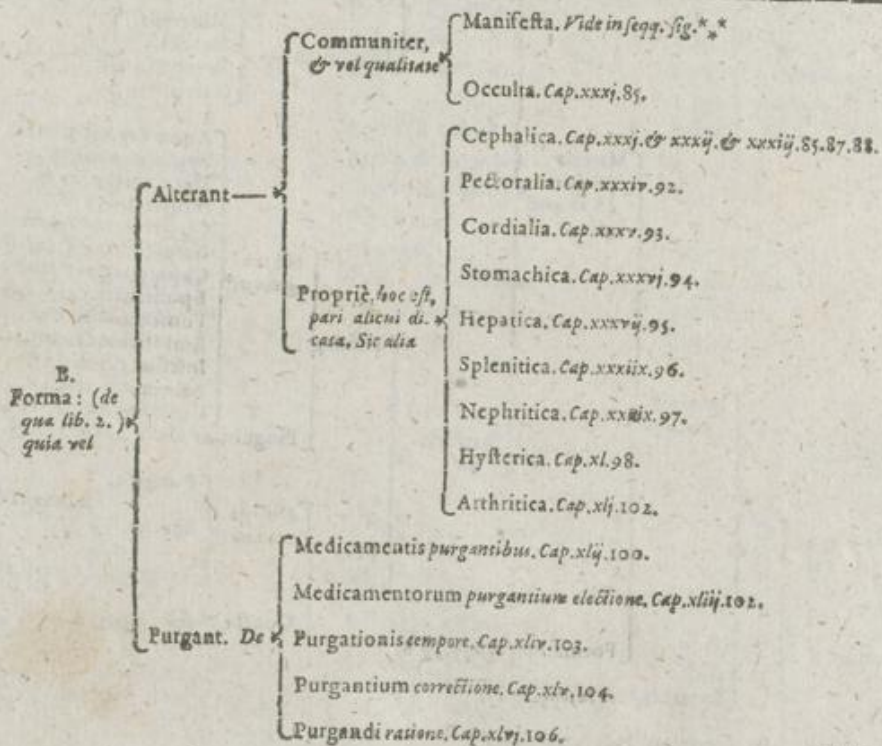 B.
Forma: (de
qua lib. 2.)
quia vel
Alterant
Communiter,
& vel qualitate
Manifesta. Vide in seqq. sig. *⁎*
Occulta. Cap. xxxj. 85.
Propriè, hoc est,
pari alicui di-
cata, Sic alia
Cephalica. Cap. xxxj. & xxxij. & xxxiij. 85. 87. 88.
Pectoralia. Cap. xxxiv. 92.
Cordialia. Cap. xxxv. 93.
Stomachica. Cap. xxxvj. 94.
Hepatica. Cap. xxxvij. 95.
Splenitica. Cap. xxxiix. 96.
Nephritica. Cap. xxxix. 97.
Hysterica. Cap. xl. 98.
Arthritica. Cap. xlj. 102.
Purgant. De
Medicamentis purgantibus. Cap. xlij. 100.
Medicamentorum purgantium electione. Cap. xliij. 102.
Purgationis tempore. Cap. xliv. 103.
Purgantium correctione. Cap. xlv. 104.
Purgandi ratione. Cap. xlvj. 106.